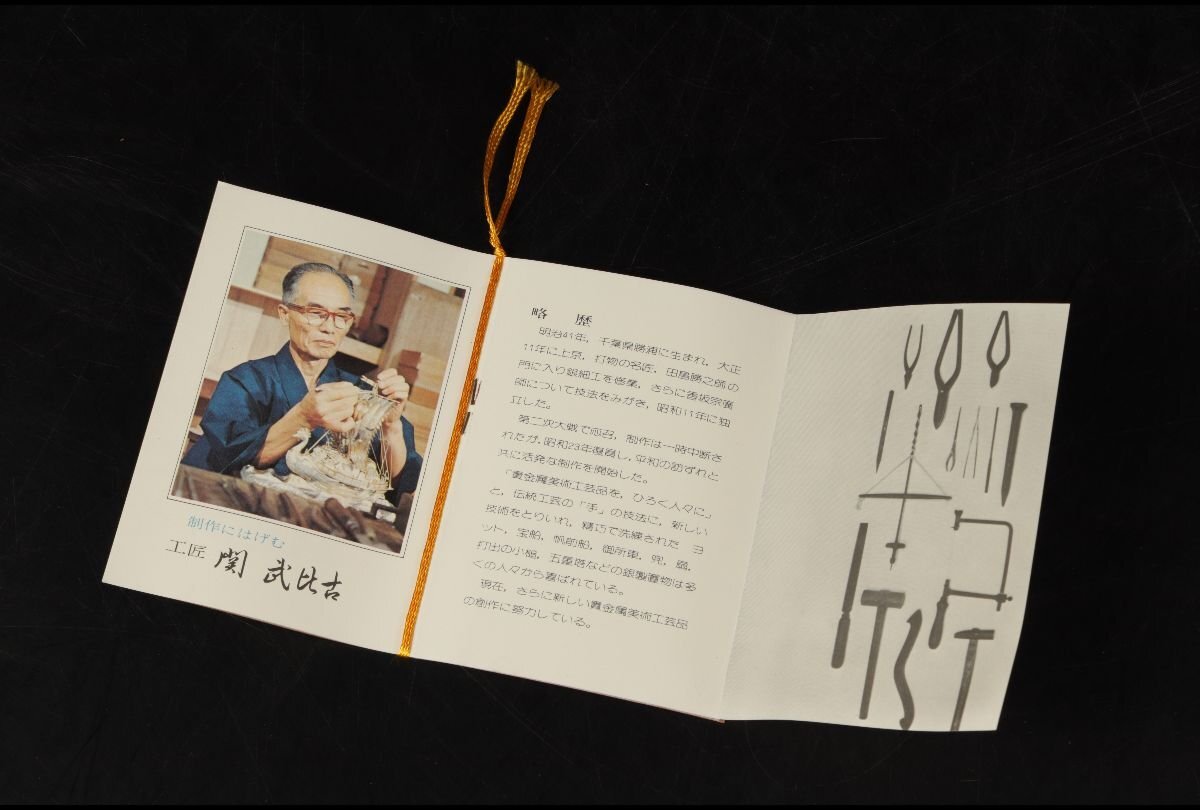 制作にはげむ
工匠 関 武比古
略 歴
明治41年，千葉県勝浦に生まれ，大正
11年に上京，打物の名匠，田島勝之師の
門に入り銀細工を修業，さらに香坂宗廣
師について技法をみがき，昭和11年に独
立した。
第二次大戦で応召，制作は一時中断さ
れたが，昭和23年復員し，平和の訪ずれと
共に活発な制作を開始した。
「貴金属美術工芸品を，ひろく人々に」
と，伝統工芸の「手」の技法に，新しい
技術をとりいれ，精巧で洗練された ヨ
ット，宝船，帆前船，御所車，兜，
打出の小槌，五重塔などの銀製置物は多
くの人々から喜ばれている。
現在，さらに新しい貴金属美術工芸品
の創作に努力している。